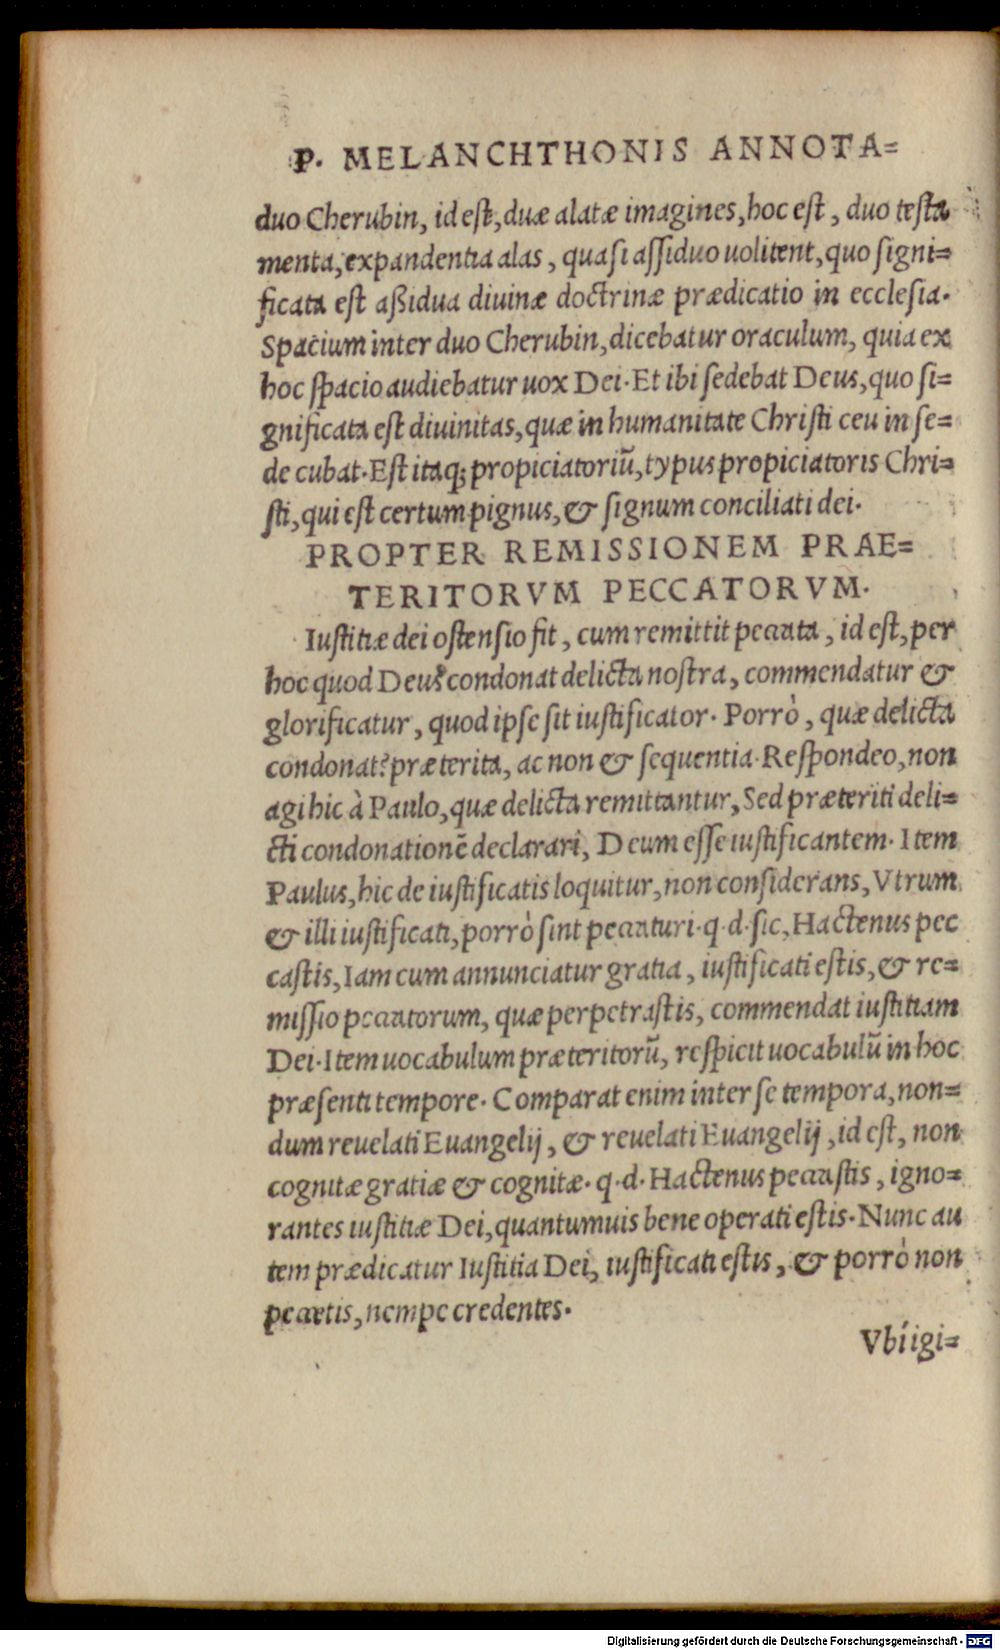 P. MELANCHTHONIS ANNOTA=
duo Cherubin, id est, duæ alatæ imagines, hoc est, duo testa
menta, expandentia alas, quasi assiduo uolitent, quo signi=
ficata est aßidua diuinæ doctrinæ prædicatio in ecclesia.
Spacium inter duo Cherubin, dicebatur oraculum, quia ex
hoc spacio audiebatur uox Dei. Et ibi sedebat Deus, quo si=
gnificata est diuinitas, quæ in humanitate Christi ceu in se=
de cubat. Est itaq; propiciatoriũ, typus propiciatoris Chri=
sti, qui est certum pignus, & signum conciliati dei.
PROPTER REMISSIONEM PRAE=
TERITORVM PECCATORVM.
Iustitiæ dei ostensio fit, cum remittit peccata, id est, per
hoc quod Deus condonat delicta nostra, commendatur &
glorificatur, quod ipse sit iustificator. Porrò, quæ delicta
condonat? præterita, ac non & sequentia. Respondeo, non
agi hic à Paulo, quæ delicta remittantur, Sed præteriti deli=
cti condonationẽ declarari, Deum esse iustificantem. Item
Paulus, hic de iustificatis loquitur, non considerans, Vtrum
& illi iustificati, porrò sint peccaturi. q. d. sic, Hactenus pec
castis, Iam cum annunciatur gratia, iustificati estis, & re=
missio peccatorum, quæ perpetrastis, commendat iustitiam
Dei. Item uocabulum præteritorũ, respicit uocabulũ in hoc
præsenti tempore. Comparat enim inter se tempora, non=
dum reuelati Euangelij, & reuelati Euangelij, id est, non
cognitæ gratiæ & cognitæ. q. d. Hactenus peccastis, igno=
rantes iustitiæ Dei, quantumuis bene operati estis. Nunc au
tem prædicatur Iustitia Dei, iustificati estis, & porrò non
peccetis, nempe credentes.
Vbi igi=
Digitalisierung gefördert durch die Deutsche Forschungsgemeinschaft - DFG